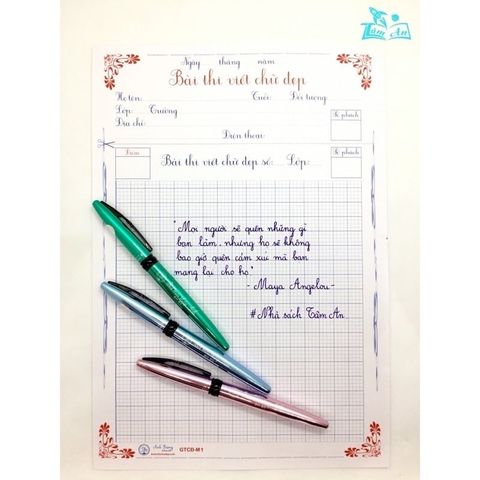 Tâm An
Ngày tháng năm
Bài thi viết chữ đẹp
Họ tên: Tuổi: Đối tượng:
Lớp: Trường
Địa chỉ:
Điện thoại:
Số phách
Điểm
Bài thi viết chữ đẹp số: Lớp:
Số phách
"Mọi người sẽ quên những gì
bạn làm, nhưng họ sẽ không
bao giờ quên cảm xúc mà bạn
mang lại cho họ."
- Maya Angelou -
#Nhà sách Tâm An
GTCĐ-M1